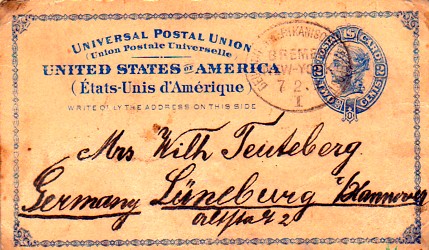 UNIVERSAL POSTAL UNION
(Union Postale Universelle)
UNITED STATES OF AMERICA
(États-Unis d'Amérique)
WRITE ONLY THE ADDRESS ON THIS SIDE
BREMEN
NEW-YORK
7 2
I
U.S. POSTAL CARD
TWO CENTS
Mrs Wilh Teuteberg
Germany Lüneburg i/Hannover